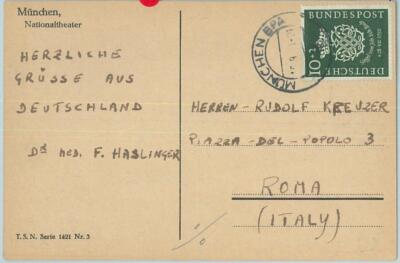 München,
Nationaltheater
HERZLICHE
GRÜSSE AUS
DEUTSCHLAND
DR MED. F. HASLINGER
T. S. N. Serie 1421 Nr. 3
MÜNCHEN BPA
DEUTSCHE
BUNDESPOST
10+2
HERREN-RUDOLF KREUZER
PIAZZA-DEL-POPOLO 3
ROMA
(ITALY)